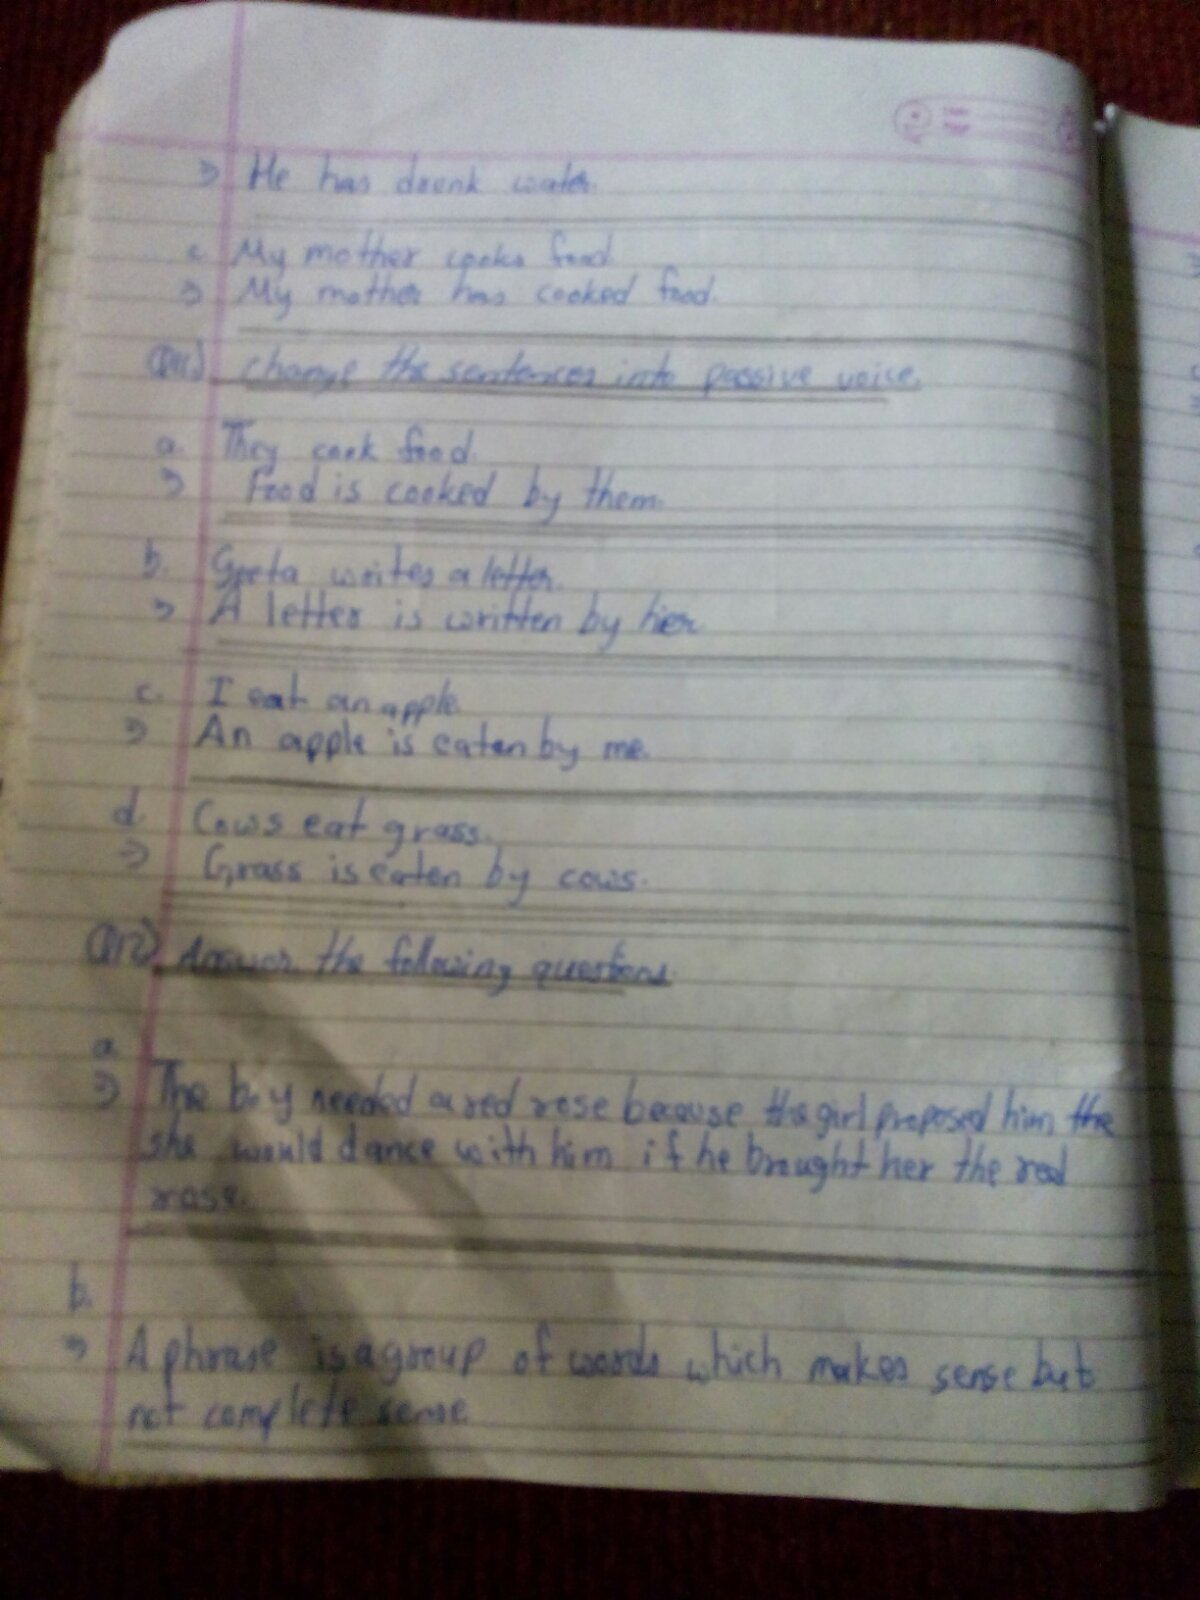 ⇒ He has drunk water.
c. My mother cooks food
⇒ My mother has cooked food.
Q11) change the sentences into passive voice.
a. They cook food.
⇒ Food is cooked by them.
b. Geeta writes a letter.
⇒ A letter is written by her
c. I eat an apple
⇒ An apple is eaten by me.
d. Cows eat grass.
⇒ Grass is eaten by cows.
Q12) Answer the following questions.
a.
⇒ The boy needed a red rose because the girl proposed him the
she would dance with him if he brought her the red
rose.
b.
⇒ A phrase is a group of words which makes sense but
not complete sense